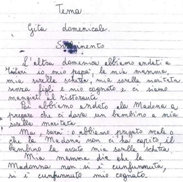 Tema
Gita domenicale.
Svolgimento
L'altra domenica abbiamo andati a
io mio papà, la mia mamma,
mia sorella sposata, mia sorella non
senza figli e mio cognato e ci siamo
mangiati al ristorante.
Poi abbiamo andati alla Madona a
pregare che ci dasse un bambino a mia
sorella maritata.
Ma, però o abbiamo pregato male o
che la Madona non ci ha capito, il
bambino la avuto mia sorella
Mia mamma dice che la
Madonna non si è cunfurmata,
si è cunfurmato mio cognato.